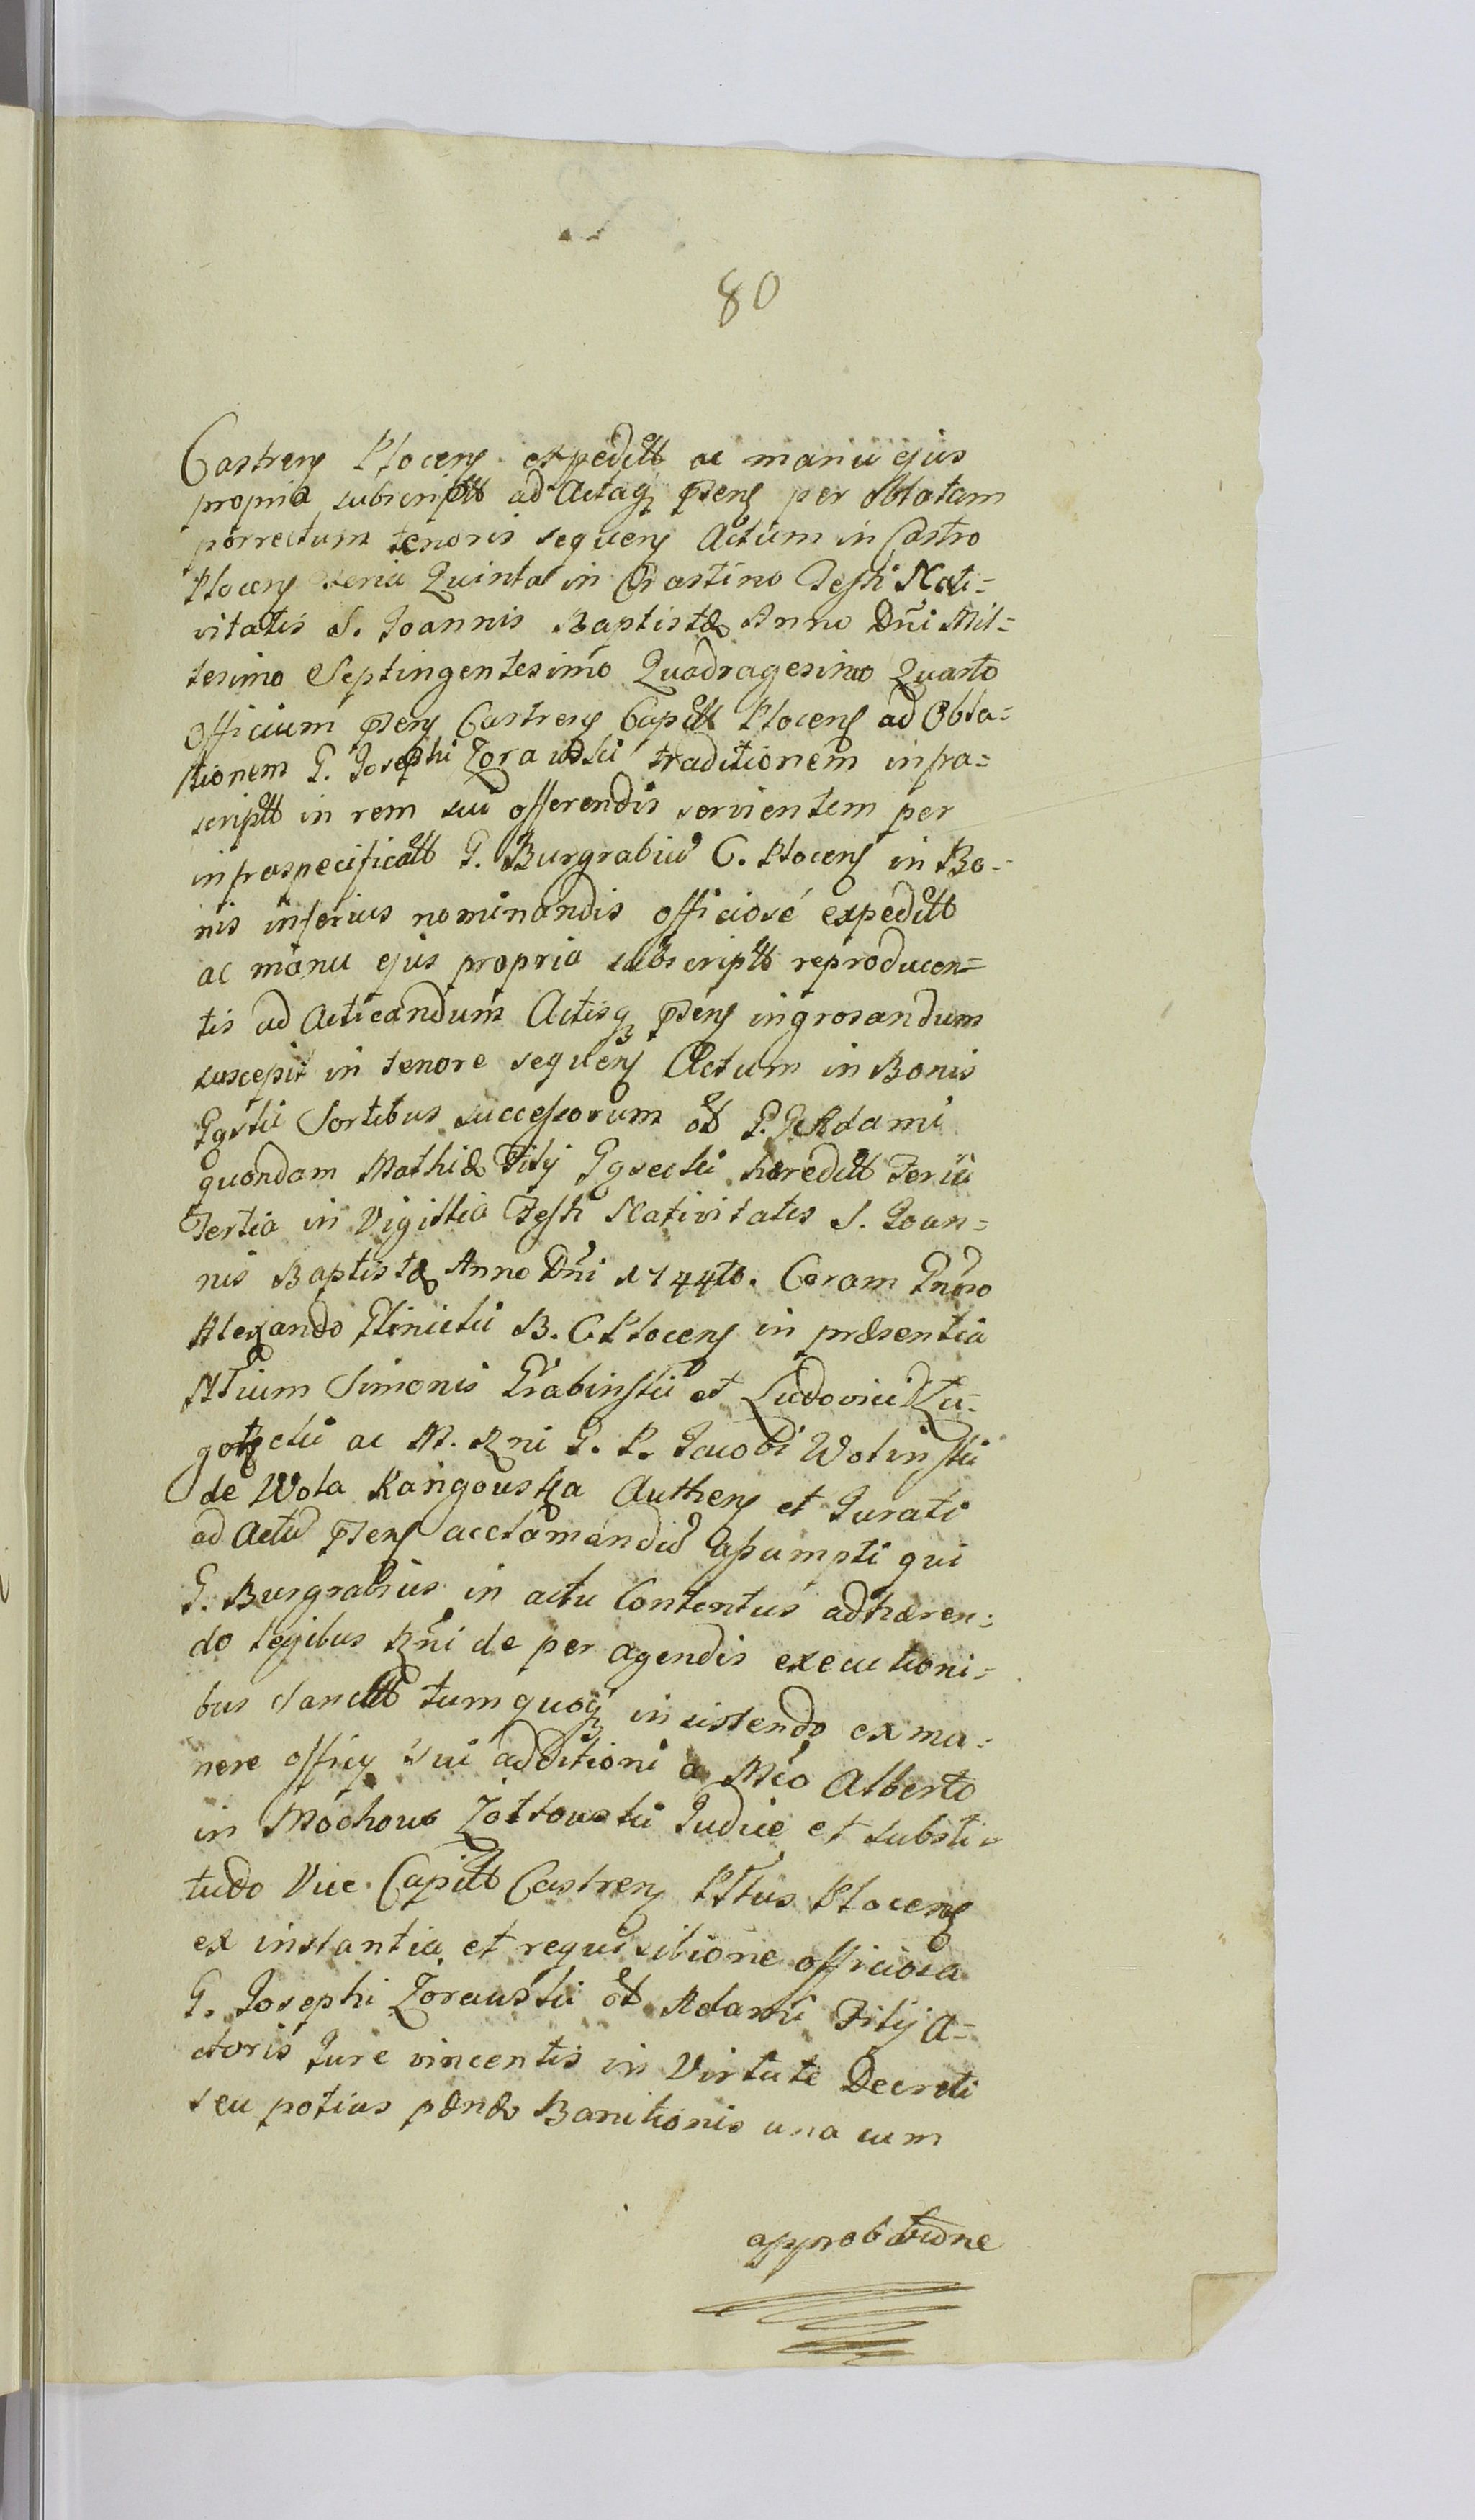 80
Castren Plocen expeditt ac manu ejus
propria subscriptt ad Actaq pnsen per Oblatam
porrectum tenoris sequen Actum in Castro
Plocen Feria Quinta in Crastino Festi Nati=
vitatis S. Joannis Baptistæ Anno Dni Mil=
lesimo Septingentesimo Quadragesimo Quarto
Officium pnsen Castren Capitt Plocen ad Obla=
tionem G. Josephi Zorawski traditionem infra=
scriptt in rem sui offerendis servientem per
infraspecificatt G. Burgrabiũ C. Plocen in Bo=
nis inferius nominandis officiosé expeditt
ac manu ejus propria subscriptt reproducen=
tis ad Acticandum Actisq pnsen ingrosandum
suscepit in tenore sequen Actum in Bonis
Sortibus successorum ol G. G. Adami
quondam Mathiæ Filij hæreditt Feria
Tertia in Vigillia Festi Nativitatis S. Joan=
nis Baptistæ Anno Dni 1744to. Coram Gnro
Alexando B. C. Plocen in præsentia
Nlium Simonis Grabinski et Ludovici Zu=
ac M. Rni G. P. Jacobi Wolinski
de Wola Authen et Jurati
ad Actũ pnsen acclamandũ assumpti qui
G. Burgrabius in actu Contentus adhæren=
do legibus Rni de per agendis executioni=
bus Sanctt tum quoq insistendo ex mu=
nere officij sui additioni a Mco Alberto
in Mochowo Zółtowski Judice et substi=
tudo Vice Capitt Castren Pltus Plocen
ex instantia et requisitione officiosa
G. Josephi Zorawski ol Adami Filij A=
ctoris Jure vincentis in Virtute Decreti
seu potius pænæ Banitionis una cum
approbatione